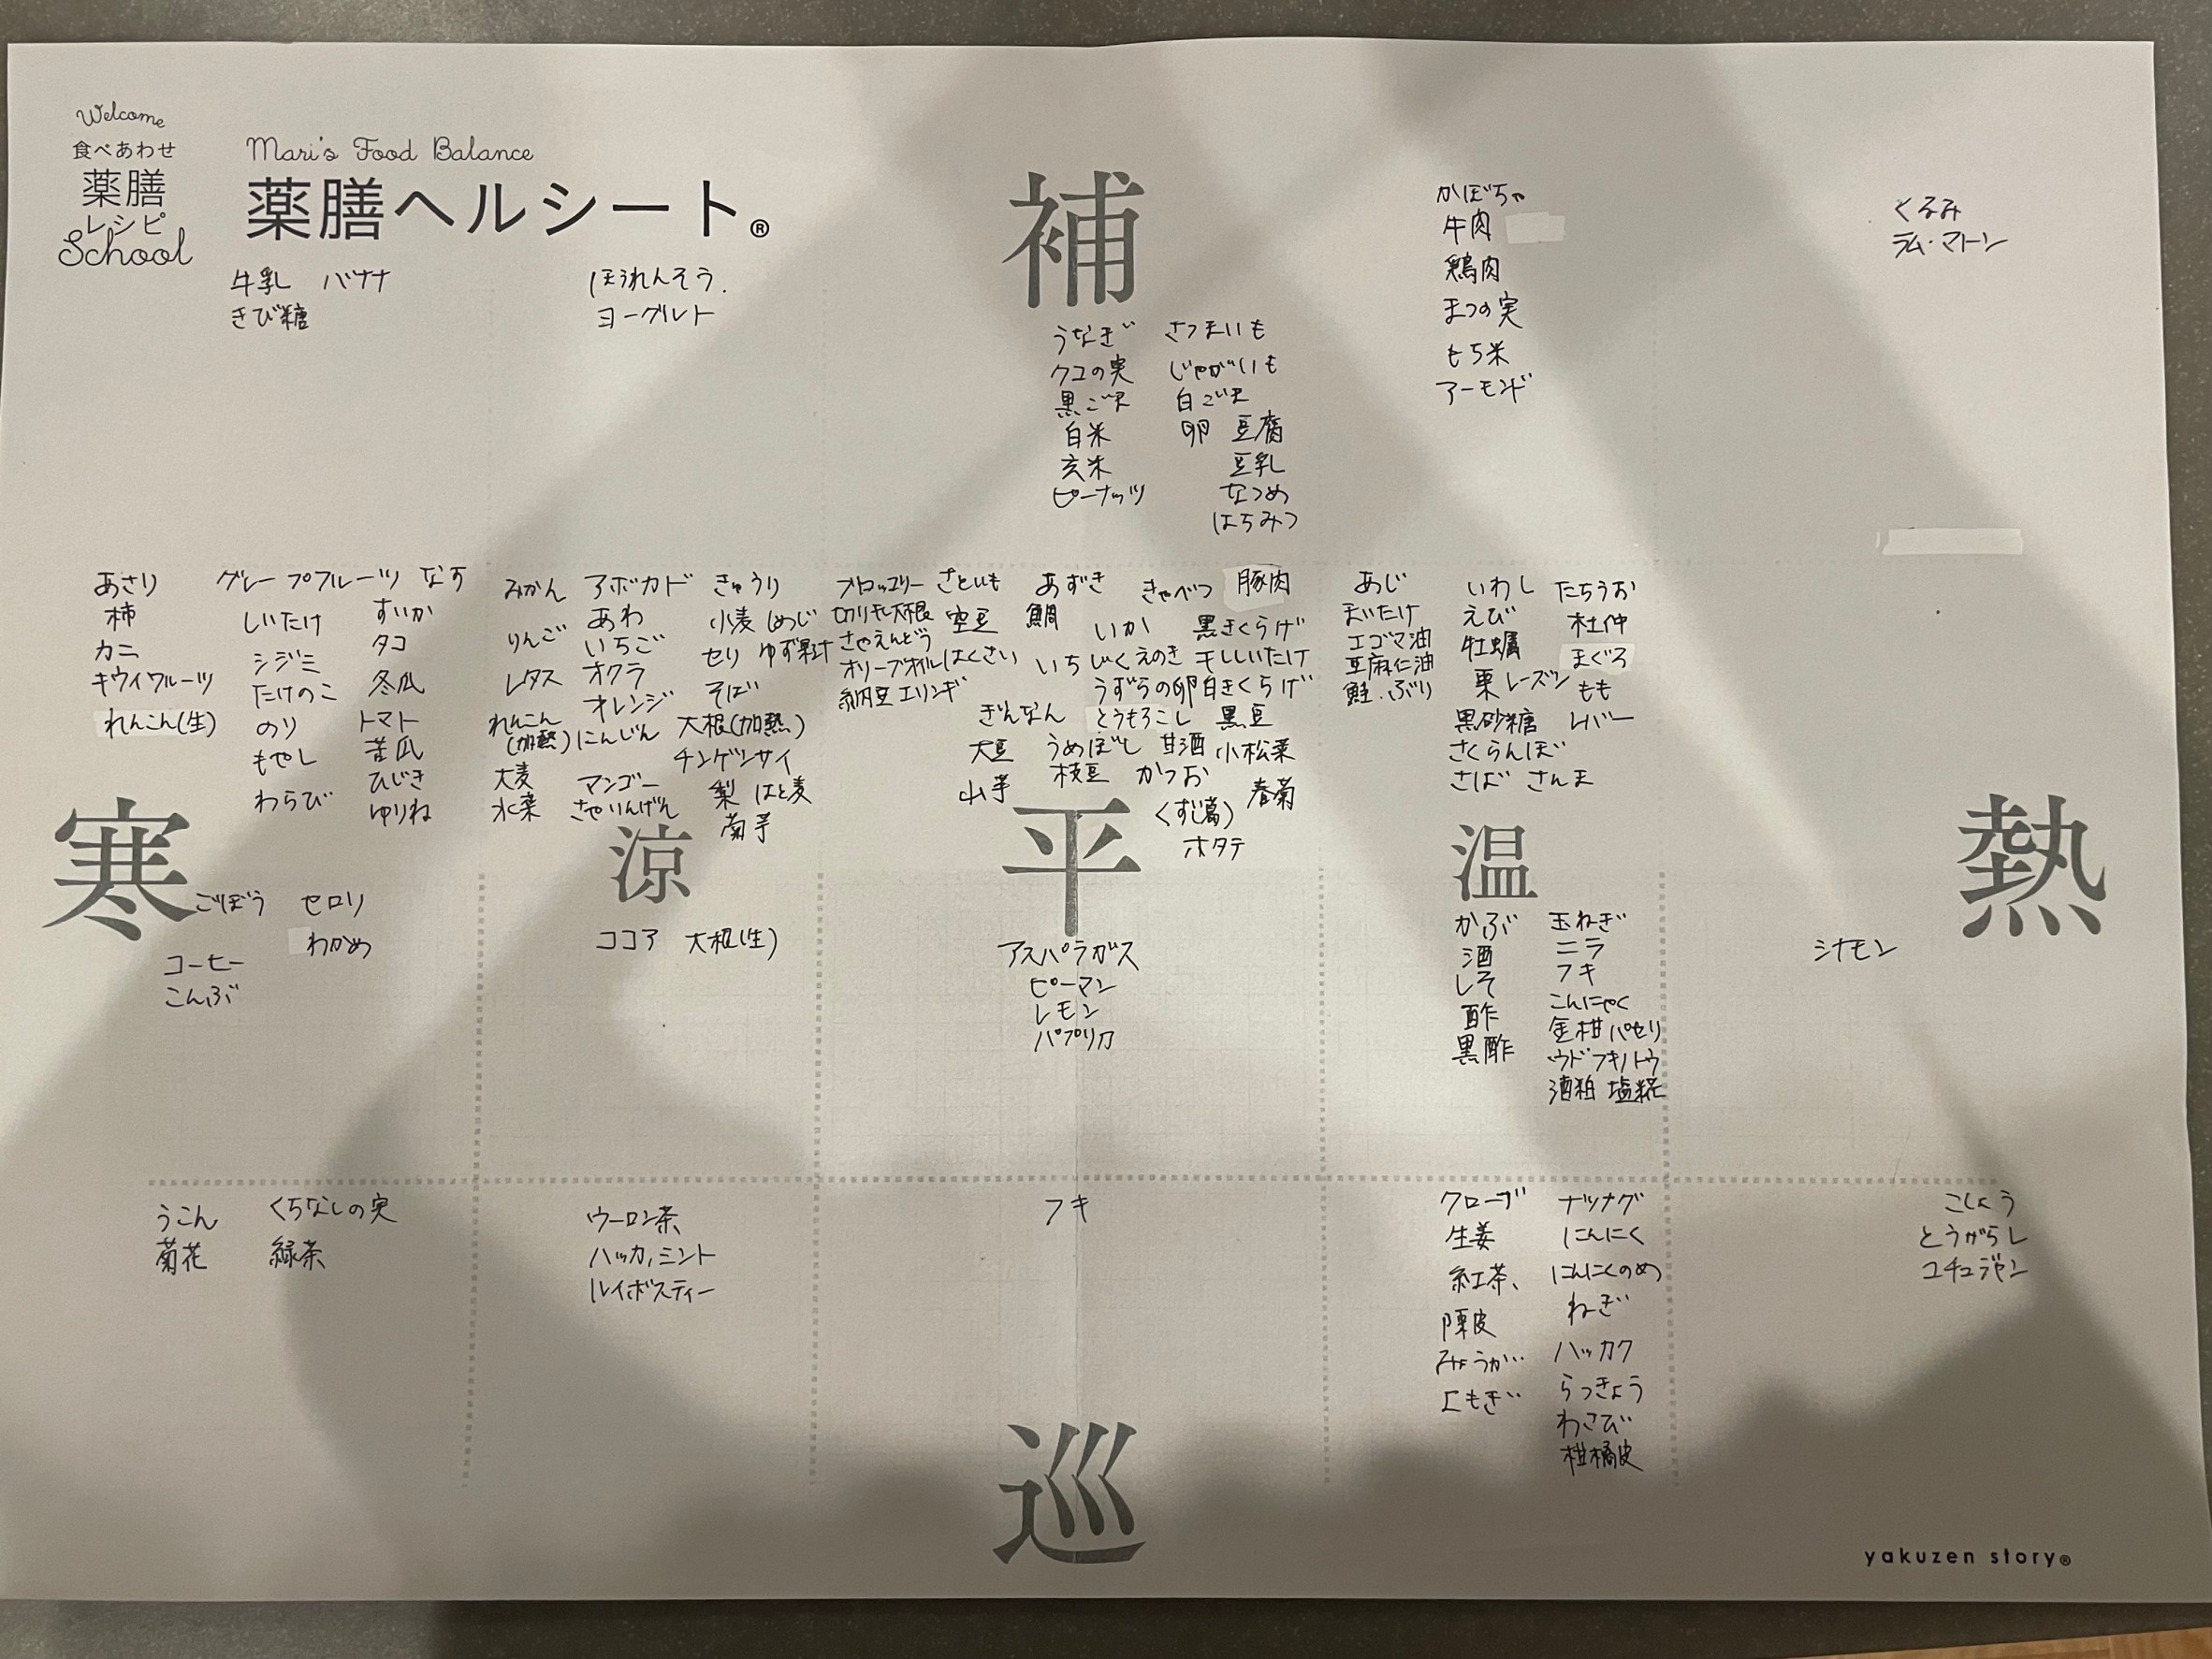 Welcome
食べあわせ
薬膳
レシピ
School
Mari's Food Balance
薬膳ヘルシート®
補
牛乳 バナナ
きび糖
ほうれんそう.
ヨーグルト
うなぎ さつまいも
クコの実 じゃがいも
黒ごま 白ごま
白米 卵 豆腐
玄米 豆乳
ピーナッツ なつめ
はちみつ
かぼちゃ
牛肉
鶏肉
まつの実
もち米
アーモンド
くるみ
ラム・マトン
あさり グレープフルーツ なす
柿 しいたけ すいか
カニ シジミ タコ
キウイフルーツ たけのこ 冬瓜
れんこん(生) のり トマト
もやし 苦瓜
わらび ひじき
ゆりね
みかん アボカド きゅうり
りんご あわ 小麦 しめじ
レタス いちご セリ ゆず果汁
れんこん オクラ そば
(加熱) オレンジ 大根(加熱)
大麦 にんじん チンゲンサイ
水菜 マンゴー 梨 はと麦
さやいんげん
ブロッコリー さといも あずき きゃべつ 豚肉
切り干し大根 空豆 鯛 いか 黒きくらげ
さやえんどう はくさい いちじく えのき 干ししいたけ
オリーブオイル うずらの卵 白きくらげ
納豆 エリンギ ぎんなん とうもろこし 黒豆
大豆 うめぼし 甘酒 小松菜
山芋 枝豆 かつお 春菊
くず(葛)
ホタテ
あじ いわし たちうお
まいたけ えび 杜仲
エゴマ油 牡蠣 まぐろ
亜麻仁油 栗 レーズン もも
鮭.ぶり 黒砂糖 レバー
さくらんぼ
さば さんま
寒
涼
平
温
熱
ごぼう セロリ
わかめ
コーヒー
こんぶ
ココア 大根(生)
アスパラガス
ピーマン
レモン
パプリカ
かぶ 玉ねぎ
酒 ニラ
しそ フキ
酢 こんにゃく
黒酢 金柑 パセリ
ウド フキノトウ
酒粕 塩糀
シナモン
うこん くちなしの実
菊花 緑茶
ウーロン茶
ハッカ,ミント
ルイボスティー
フキ
クローブ ナツメグ
生姜 にんにく
紅茶、 にんにくのめ
陳皮 ねぎ
みょうが ハッカク
よもぎ らっきょう
わさび
柑橘皮
こしょう
とうがらし
コチュジャン
巡
yakuzen story®